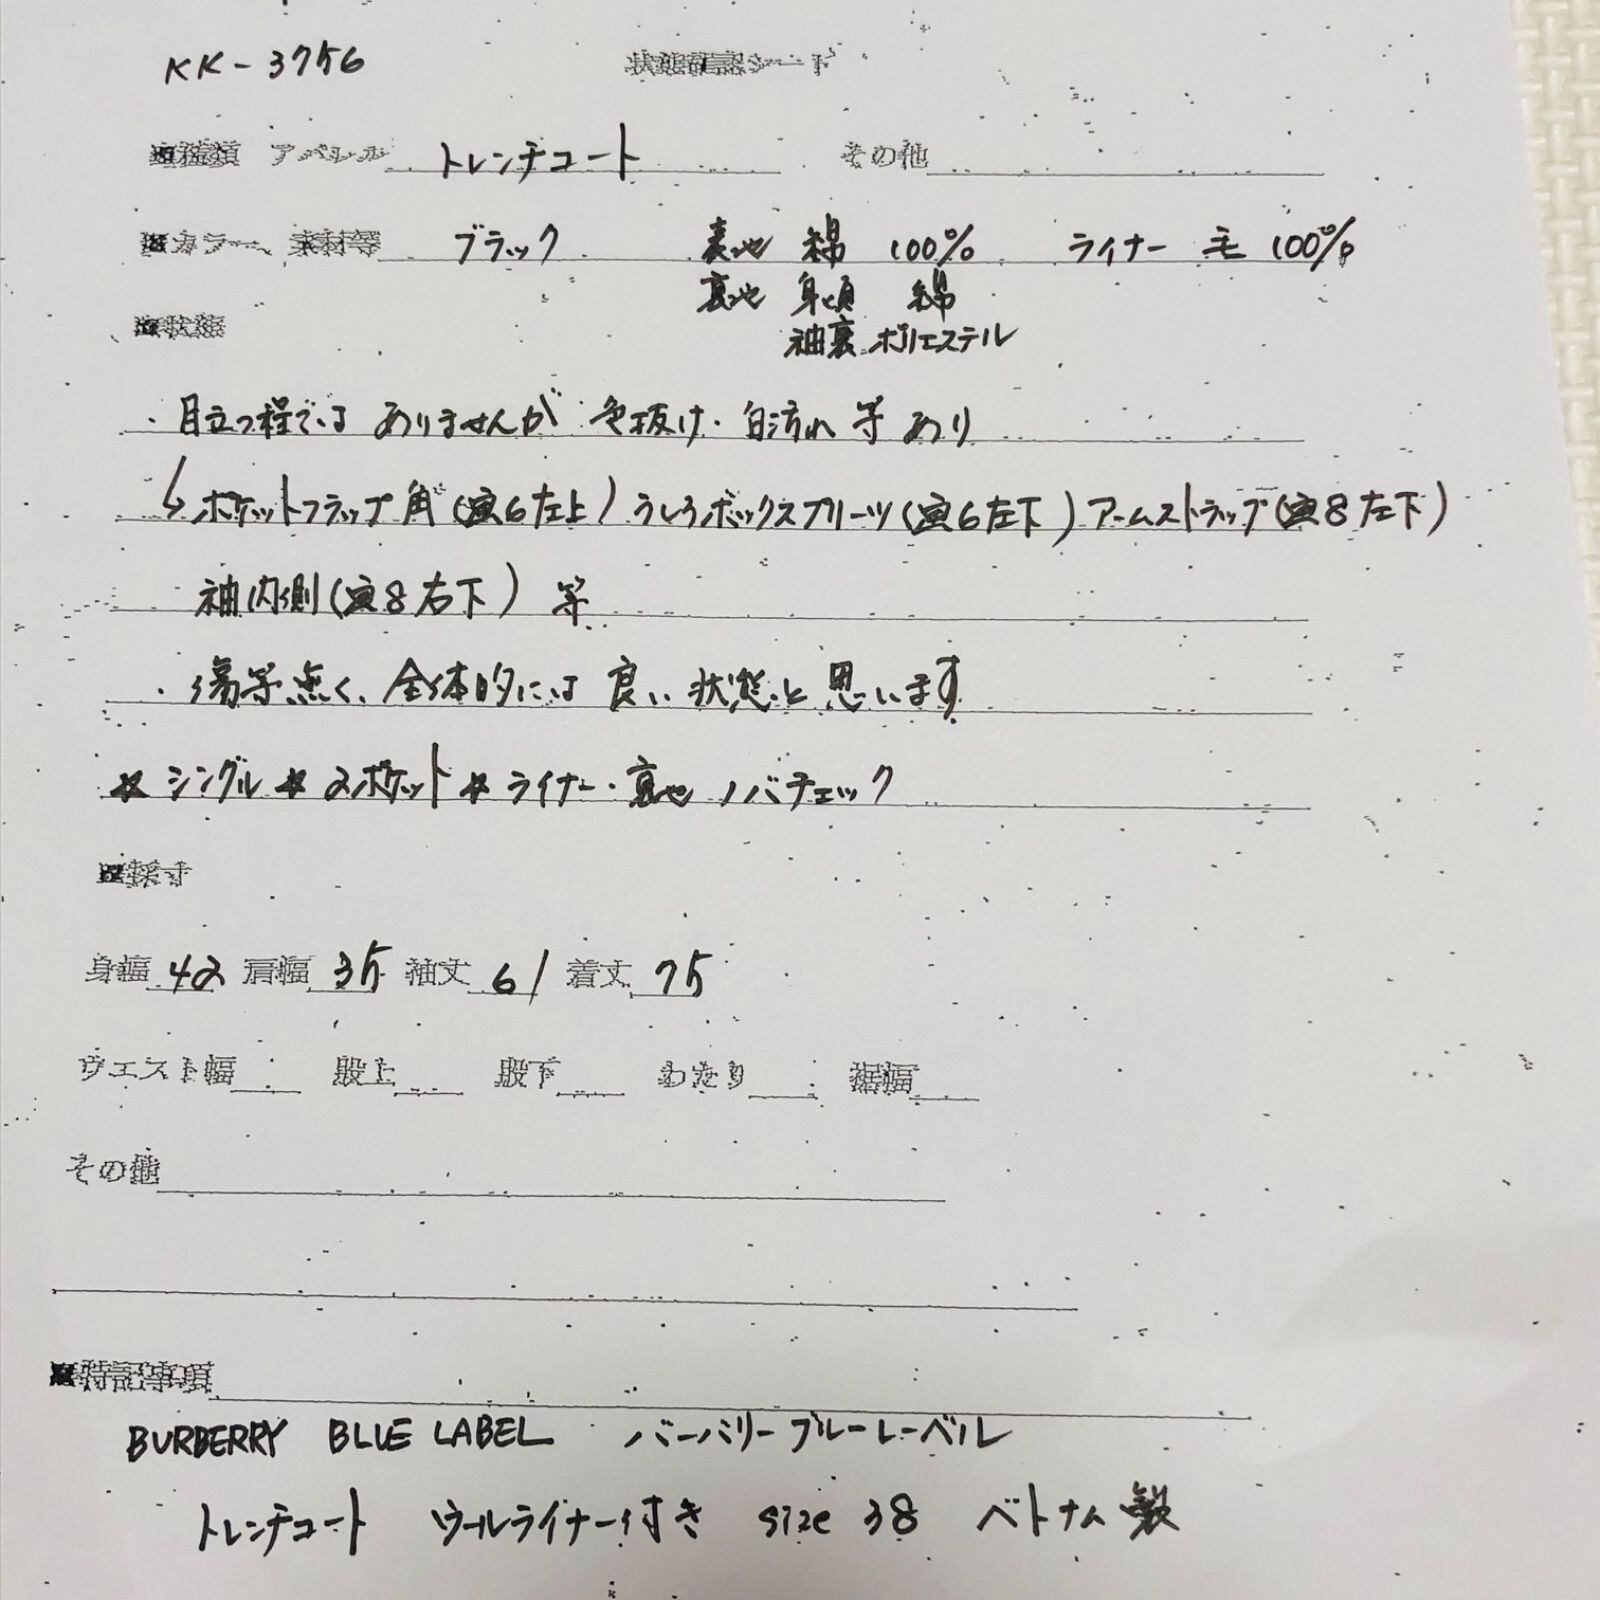 KK-3756 状態確認シート
■種類 アパレル トレンチコート その他
■カラー、素材等 ブラック 表地 綿 100% ライナー 毛 100%
裏地 身頃 綿
■状態 袖裏 ポリエステル
・目立つ程では ありませんが 色抜け・白汚れ 等 あり
↳ポケットフラップ角(寅6左上) うしろボックスプリーツ(寅6左下) アームストラップ(寅8左下)
袖内側(寅8右下) 等
・傷等無く、全体的には 良い 状態と 思います
☆シングル☆2ポケット☆ライナー・裏地ノバチェック
■採寸
身幅 42 肩幅 35 袖丈 61 着丈 75
ウエスト幅 股上 股下 わたり 裾幅
その他
■特記事項
BURBERRY BLUE LABEL バーバリーブルーレーベル
トレンチコート ウールライナー付き size 38 ベトナム製